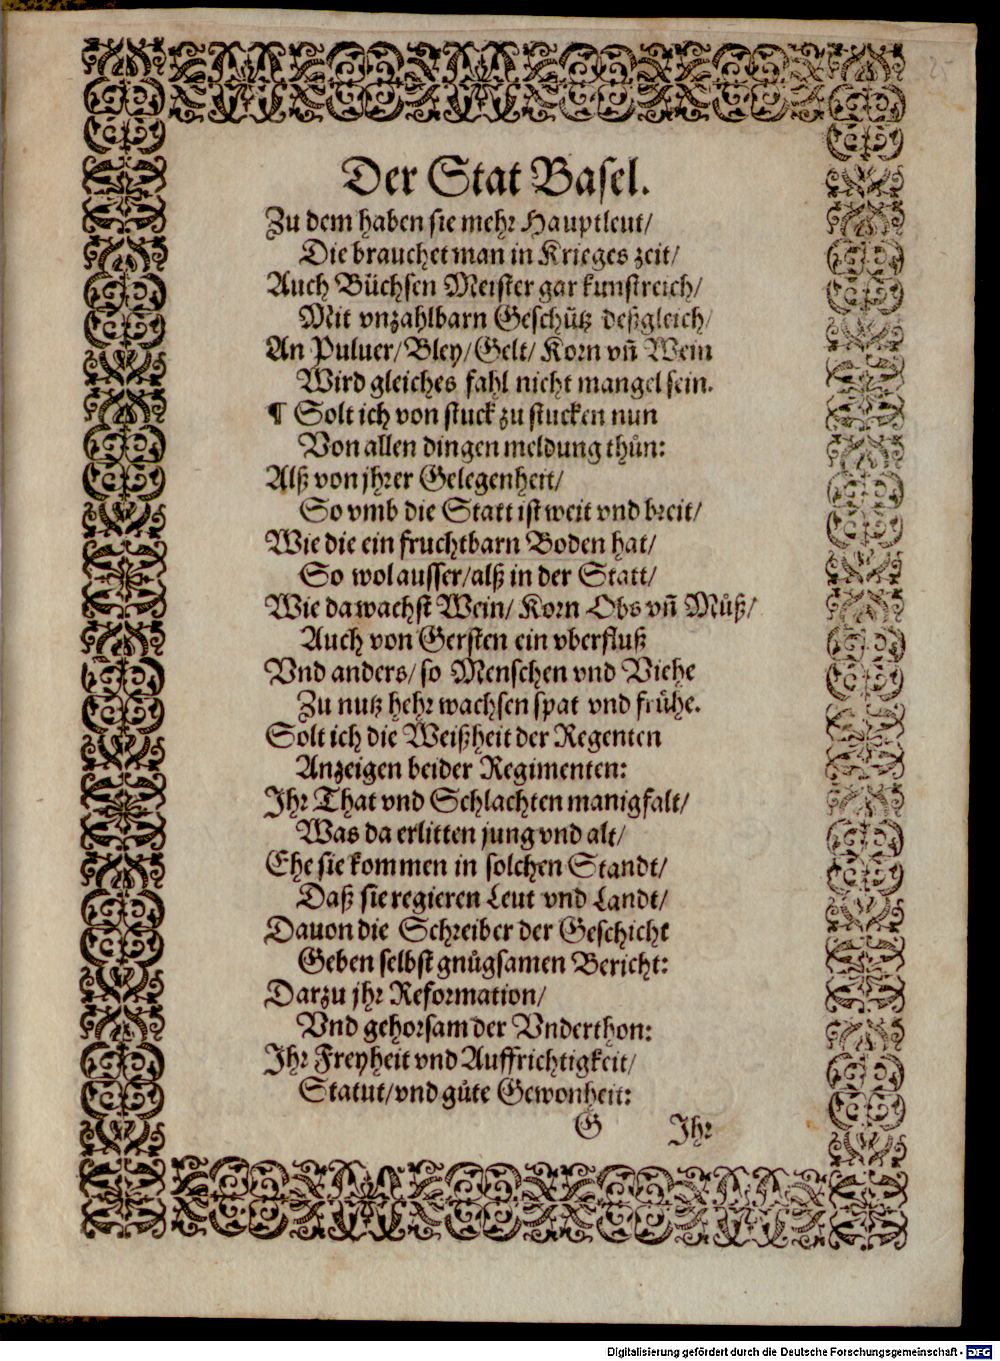 25
Der Stat Basel.
Zu dem haben sie mehr Hauptleut/
Die brauchet man in Krieges zeit/
Auch Büchsen Meister gar kunstreich/
Mit vnzahlbarn Geschütz deßgleich/
An Puluer/ Bley/ Gelt/ Korn vñ Wein
Wird gleiches fahl nicht mangel sein.
¶ Solt ich von stuck zu stucken nun
Von allen dingen meldung thůn:
Alß von jhrer Gelegenheit/
So vmb die Statt ist weit vnd breit/
Wie die ein fruchtbarn Boden hat/
So wol ausser/ alß in der Statt/
Wie da wachst Wein/ Korn Obs vñ Můß/
Auch von Gersten ein vberfluß
Vnd anders/ so Menschen vnd Viehe
Zu nutz hehr wachsen spat vnd frůhe.
Solt ich die Weißheit der Regenten
Anzeigen beider Regimenten:
Jhr That vnd Schlachten manigfalt/
Was da erlitten jung vnd alt/
Ehe sie kommen in solchen Standt/
Daß sie regieren Leut vnd Landt/
Dauon die Schreiber der Geschicht
Geben selbst gnůgsamen Bericht:
Darzu jhr Reformation/
Vnd gehorsam der Vnderthon:
Jhr Freyheit vnd Auffrichtigkeit/
Statut/ vnd gůte Gewonheit:
G Jhr
Digitalisierung gefördert durch die Deutsche Forschungsgemeinschaft - DFG